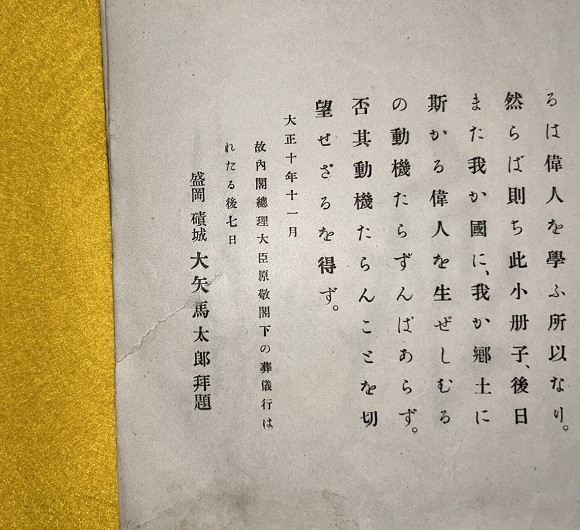 るは偉人を學ふ所以なり。
然らば則ち此小册子、後日
また我か國に、我か鄕土に
斯かる偉人を生ぜしむる
の動機たらずんばあらず。
否其動機たらんことを切
望せざるを得ず。
大正十年十一月
故內閣總理大臣原敬閣下の葬儀行は
れたる後七日
盛岡 磧城 大矢馬太郎拜題